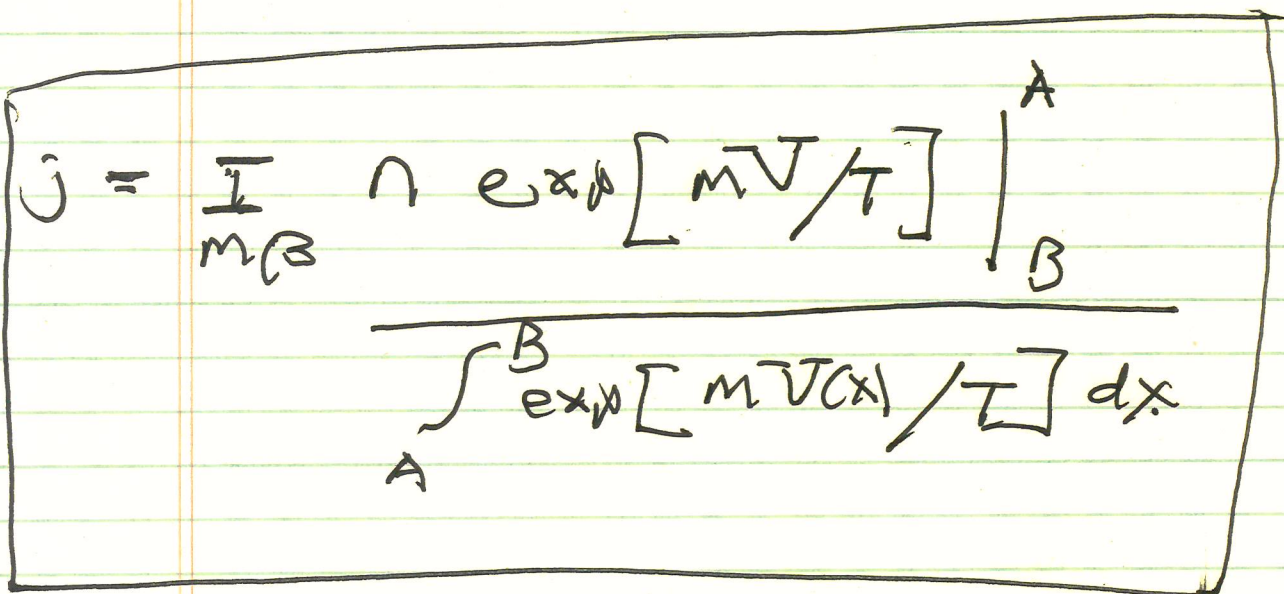 j = T/mβ n exp[mV/T] |_B^A
∫_A^B exp[mV(x)/T] dx